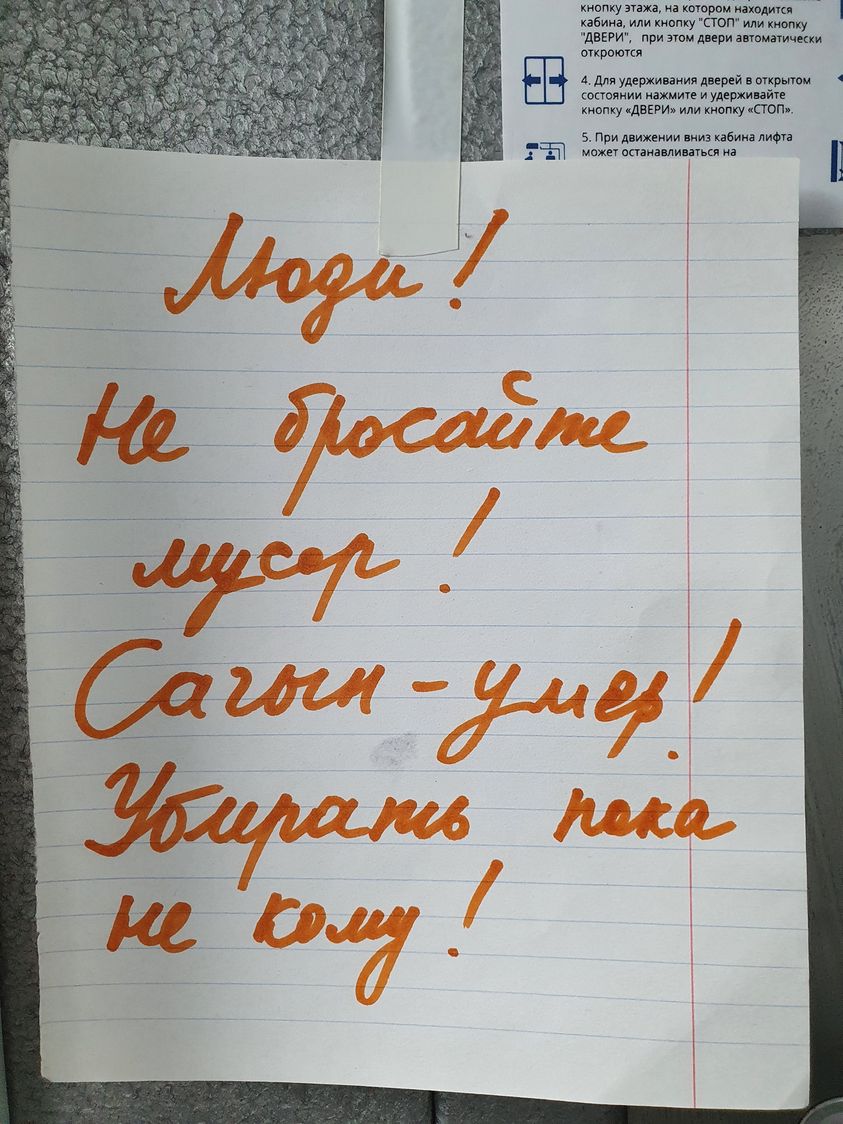 кнопку этажа, на котором находится
кабина, или кнопку "СТОП" или кнопку
"ДВЕРИ", при этом двери автоматически
откроются
4. Для удерживания дверей в открытом
состоянии нажмите и удерживайте
кнопку «ДВЕРИ» или кнопку «СТОП».
5. При движении вниз кабина лифта
может останавливаться на
Люди!
Не бросайте
мусор!
Сагын - умер!
Убирать пока
не кому!